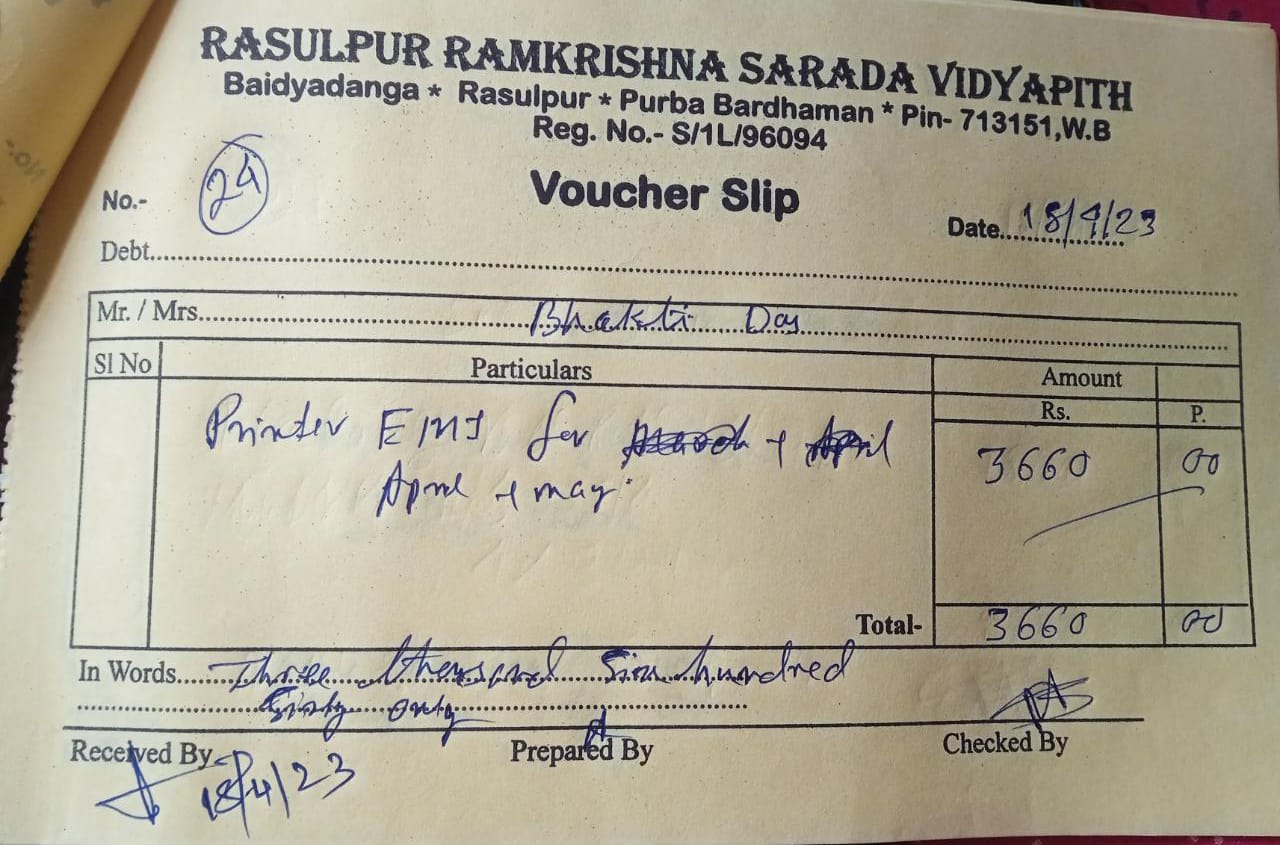 RASULPUR RAMKRISHNA SARADA VIDYAPITH
Baidyadanga * Rasulpur * Purba Bardhaman * Pin- 713151,W.B
Reg. No.- S/1L/96094
Voucher Slip
No.- 24
Date....18/4/23
Debt....
Mr. / Mrs....Bhakti Das
Sl No Particulars Amount
Rs. P.
Printer EMI for March + April 3660 00
April + may.
Total- 3660 00
In Words....Three thousand Six hundred
Sixty only
Received By Prepared By Checked By
18/4/23